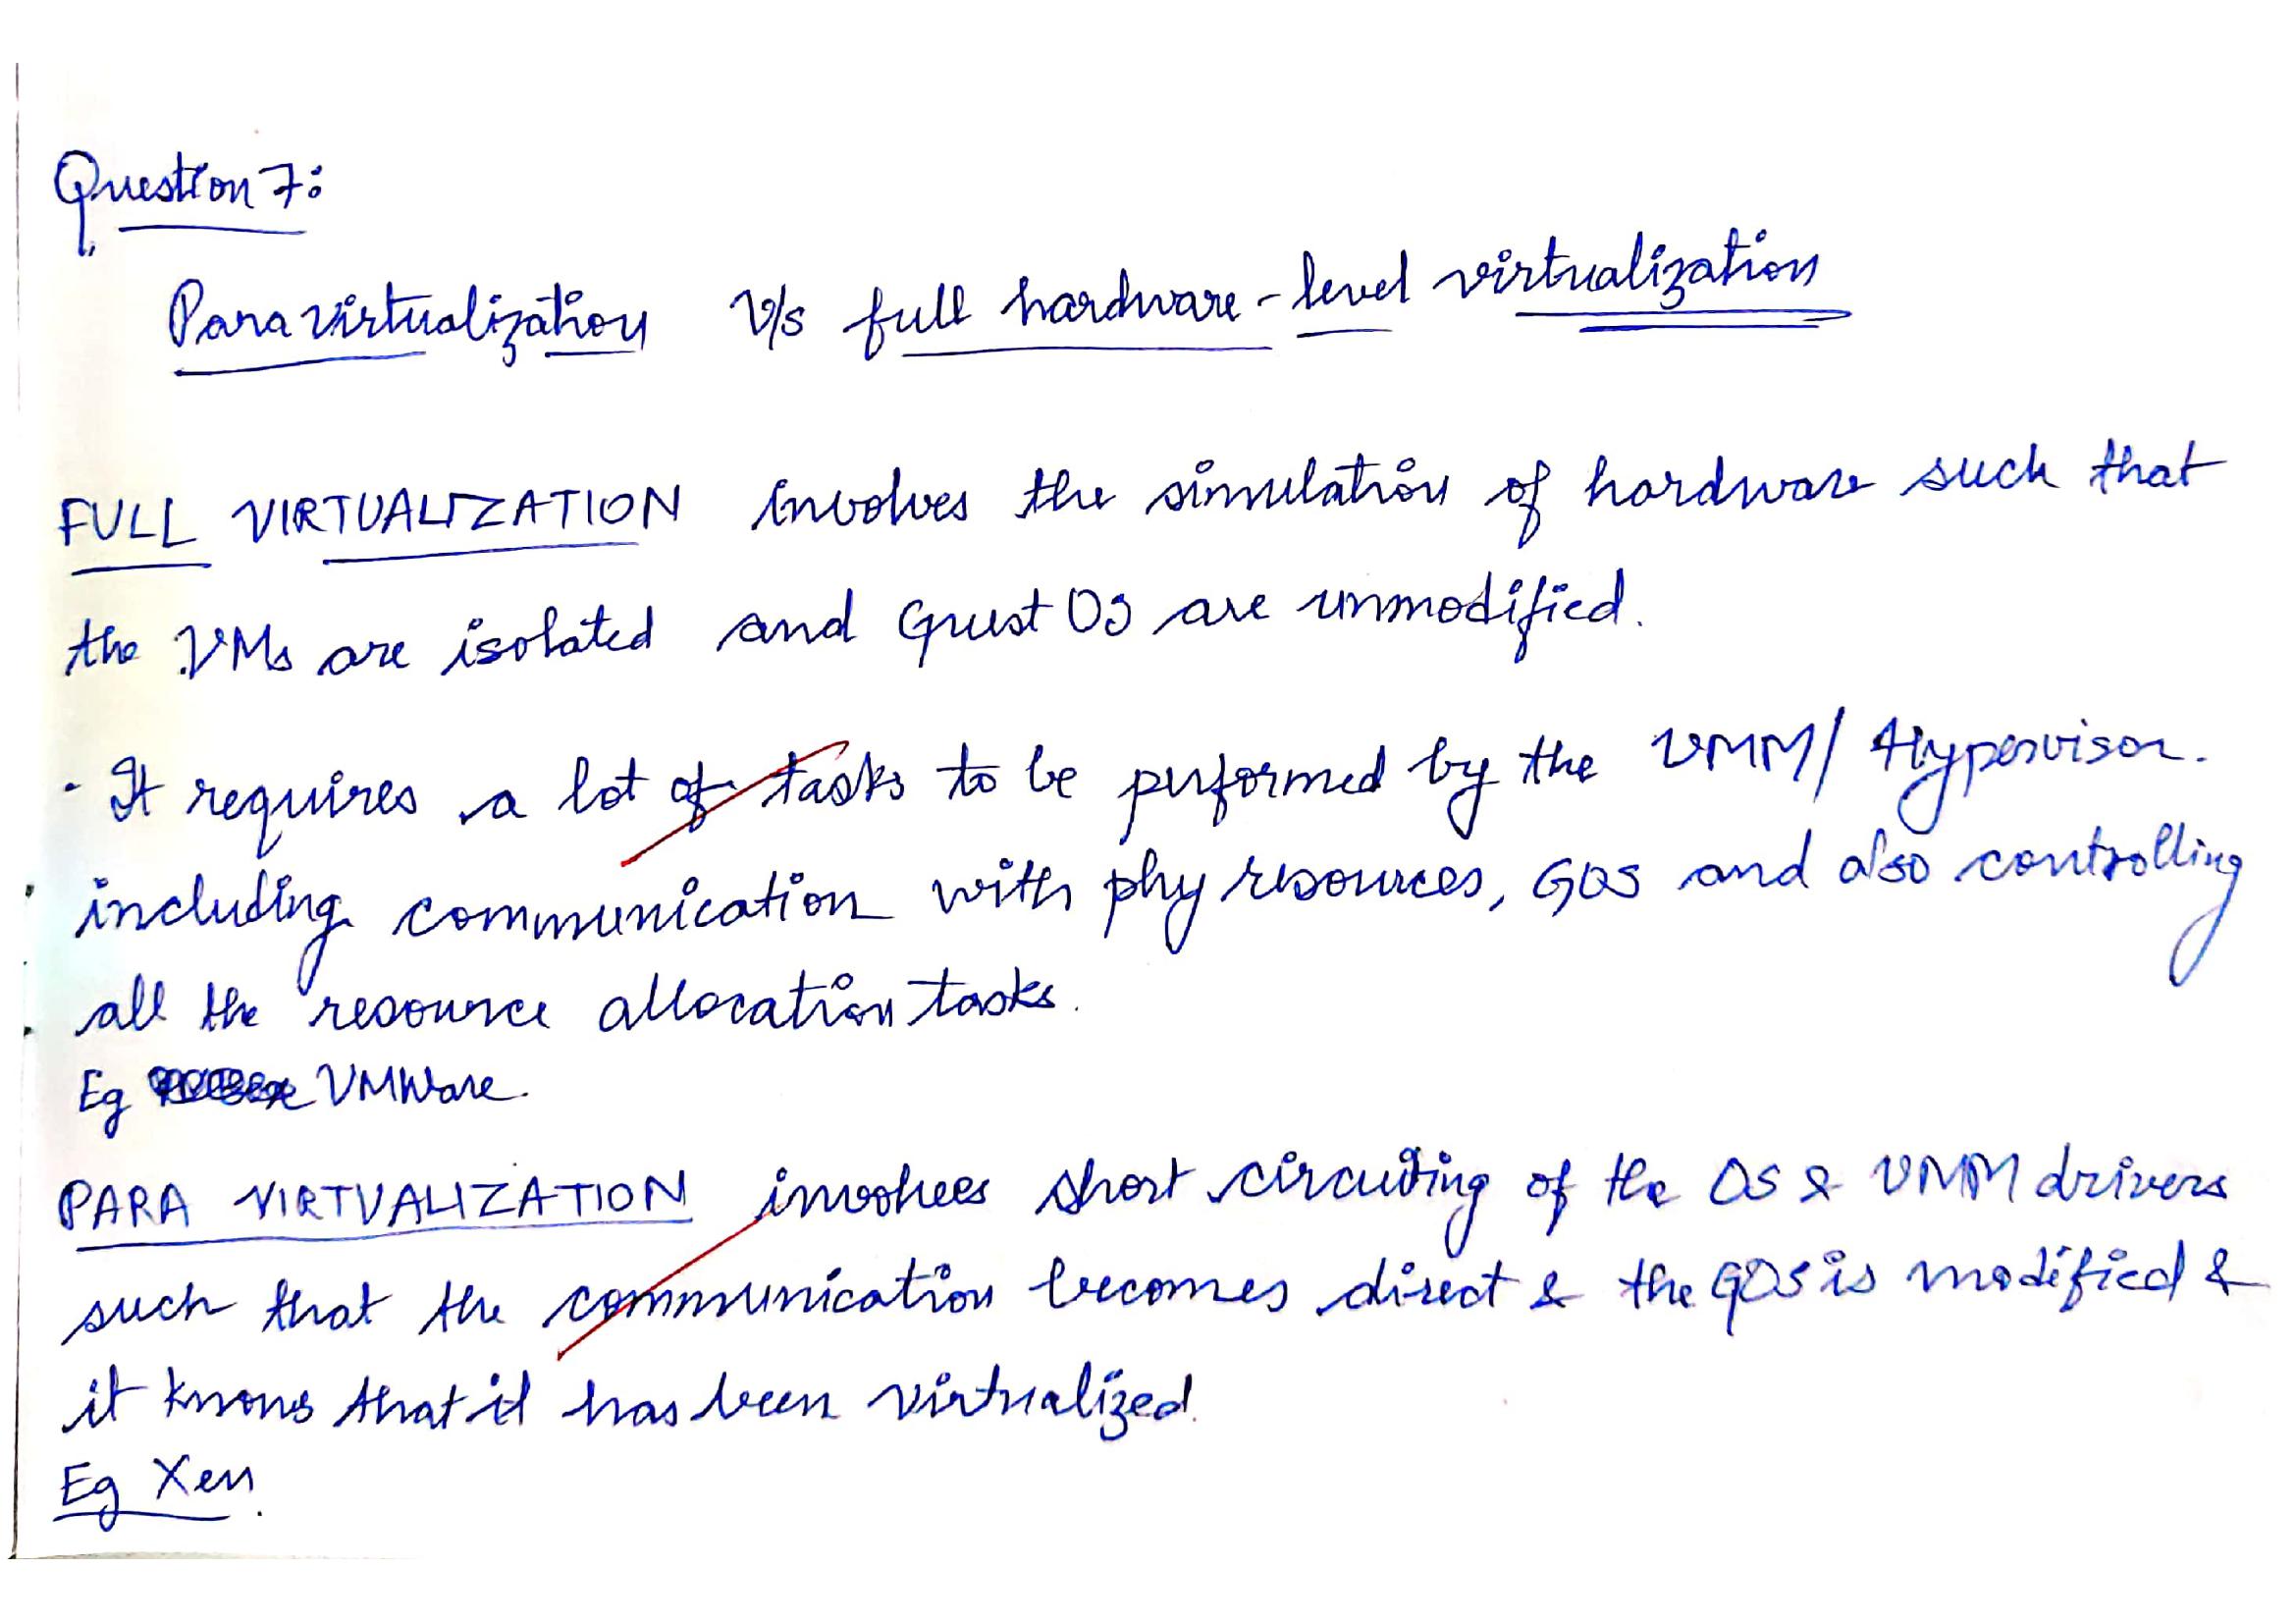 Question 7:
Para virtualization V/s full hardware-level virtualization
FULL VIRTUALIZATION involves the simulation of hardware such that
the VMs are isolated and Guest OS are unmodified.
· It requires a lot of tasks to be performed by the VMM/Hypervisor.
including communication with phy resources, GOS and also controlling
all the resource allocation tasks.
Eg VMWare.
PARA VIRTUALIZATION involves short circuiting of the OS & VMM drivers
such that the communication becomes direct & the GOS is modified &
it knows that it has been virtualized.
Eg Xen.